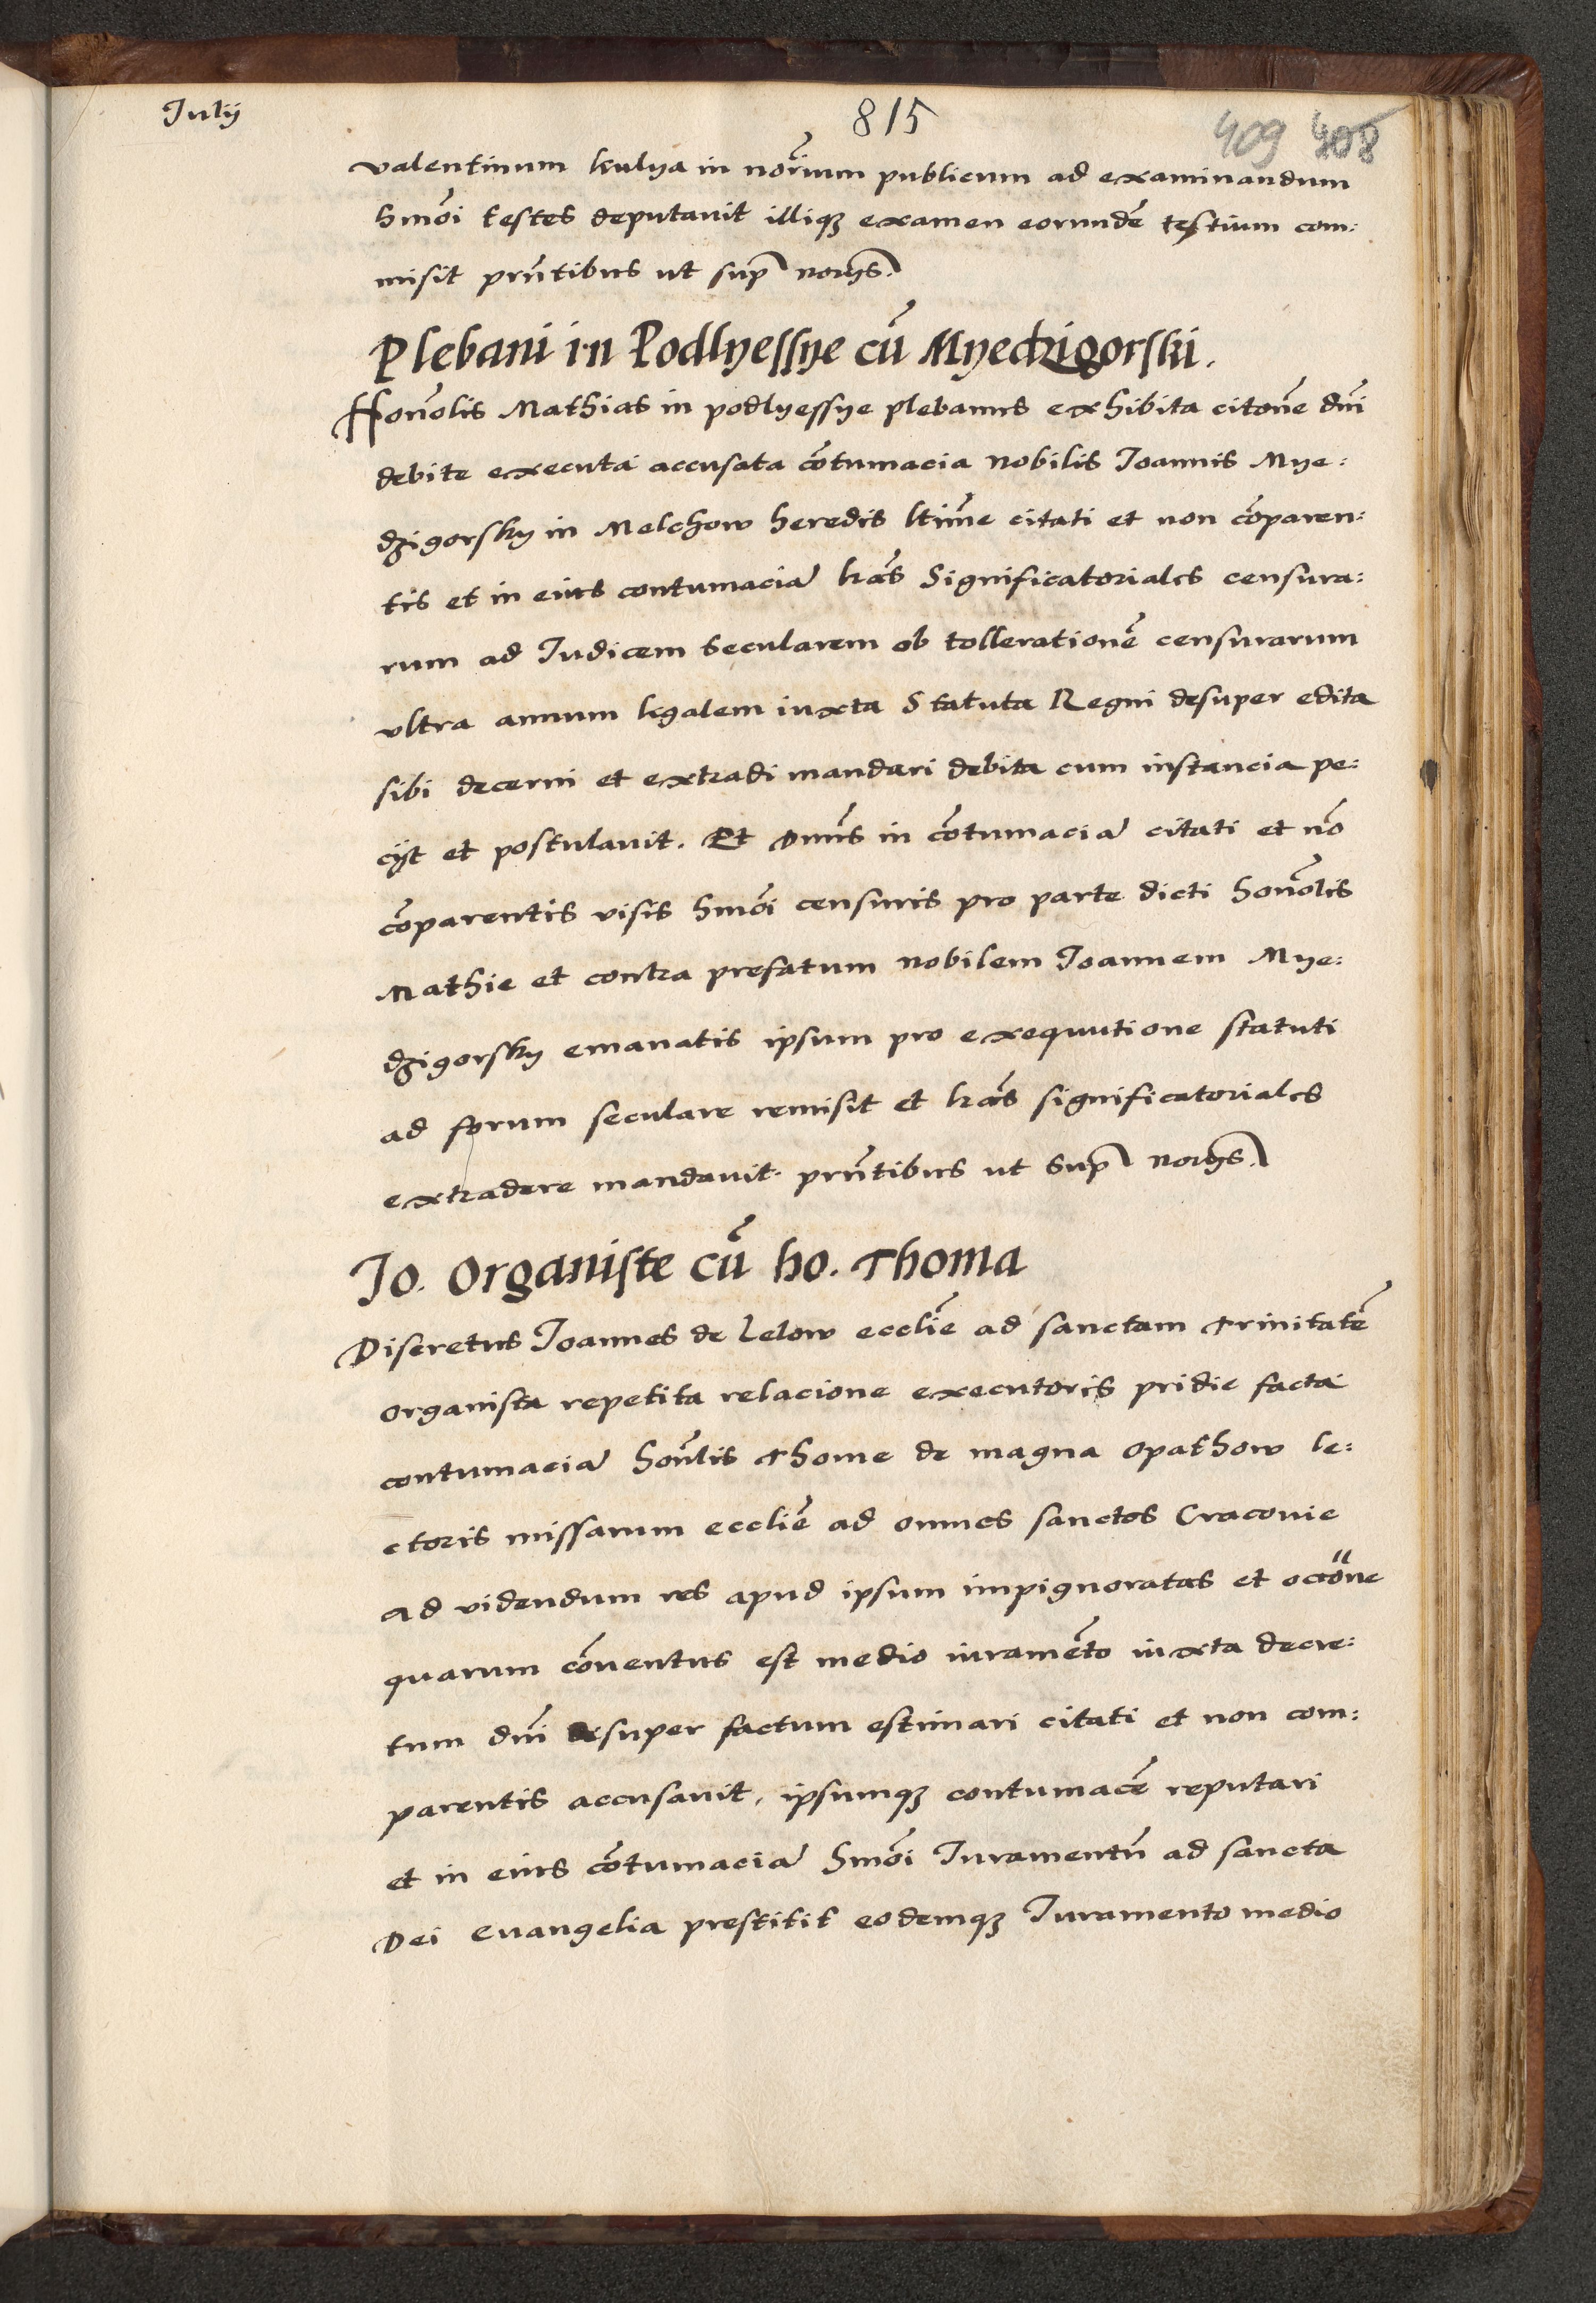 Julij
815
409 408
valentinum kulya in nōrium publicum ad examinandum
hmōi testes deputauit illiqȝ examen eorundē testium com:
misit prn̄tibus ut supꝰ norijs.
Plebani in Podlyessye cū Myedzigorski.
Honolis Mathias in podlyessye plebanus exhibita citōne dn̄i
debite executa accusata cōtumacia nobilis Joannis Mye:
dzigorsky in Melchow heredis ltīme citati et non cōparen:
tis et in eius contumaciā lr̄as Significatoriales censura:
rum ad Judicem secularem ob tollerationē censurarum
vltra annum legalem iuxta Statuta Regni desuper edita
sibi decerni et extradi mandari debita cum instancia pe:
cijt et postulauit. Et Dnn̄s in cōtumaciā citati et nō
cōparentis visis hmōi censuris pro parte dicti honōlis
Mathie et contra prefatum nobilem Joannem Mye:
dzigorsky emanatis ipsum pro exequutione statuti
ad forum seculare remisit et lr̄as significatoriales
extradere mandauit. prn̄tibus ut supꝰ norijs.
Jo. Organiste cū ho. Thoma
Discretus Joannes de Lelow eccliē ad sanctam Trinitatē
organista repetita relacione executoris pridie facta
contumaciā honlis Thome de magna Opathow le:
ctoris missarum eccliē ad omnes sanctos Cracouie
ad videndum res apud ipsum impignoratas et occōne
quarum cōuentus est medio iuramēto iuxta decre:
tum dn̄i desuper factum estimari citati et non com:
parentis accusauit, ipsumqȝ contumacē reputari
et in eius cōtumaciā hmōi Juramentū ad sancta
Dei euangelia prestitit eodemqȝ Juramento medio